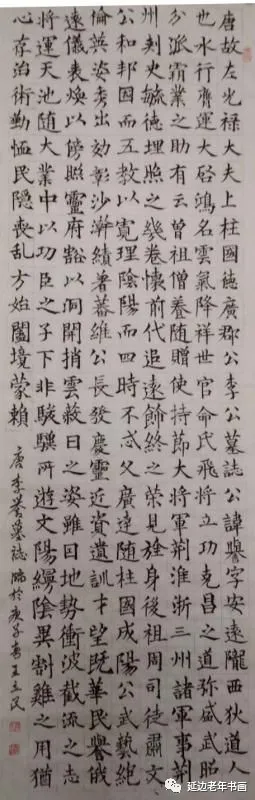 唐故左光禄大夫上柱國德廣郡公李公墓誌公諱譽字安遠隴西狄道人
也水行膺運大啓鴻名雲氣降祥世官命氏飛將立功克昌之道弥盛武昭
分派霸業之助有云曾祖僧養随贈使持節大將軍荆淮浙三州諸軍事荆
州刾史毓德埋照之幾卷懷前代追遠飾終之榮見旌身後祖周司徒肅文
公和邦因而五教以寛理陰陽而四時不忒父廣達随柱國成陽公武藝絶
倫英姿秀出効彰沙漸績著蕃維公長發慶靈近資遺訓才望既華民譽俄
遠儀表煥以傍照靈府豁以洞開捎雲蔽日之姿雖因地勢衝波截流之志
將運天池随大業中以功臣之子下非駿驥所遊文陽縵陰異割雞之用猶
心存治術勤恤民隱喪乱方始闔境蒙賴
唐李譽墓誌 臨於庚子春王立民
延边老年书画